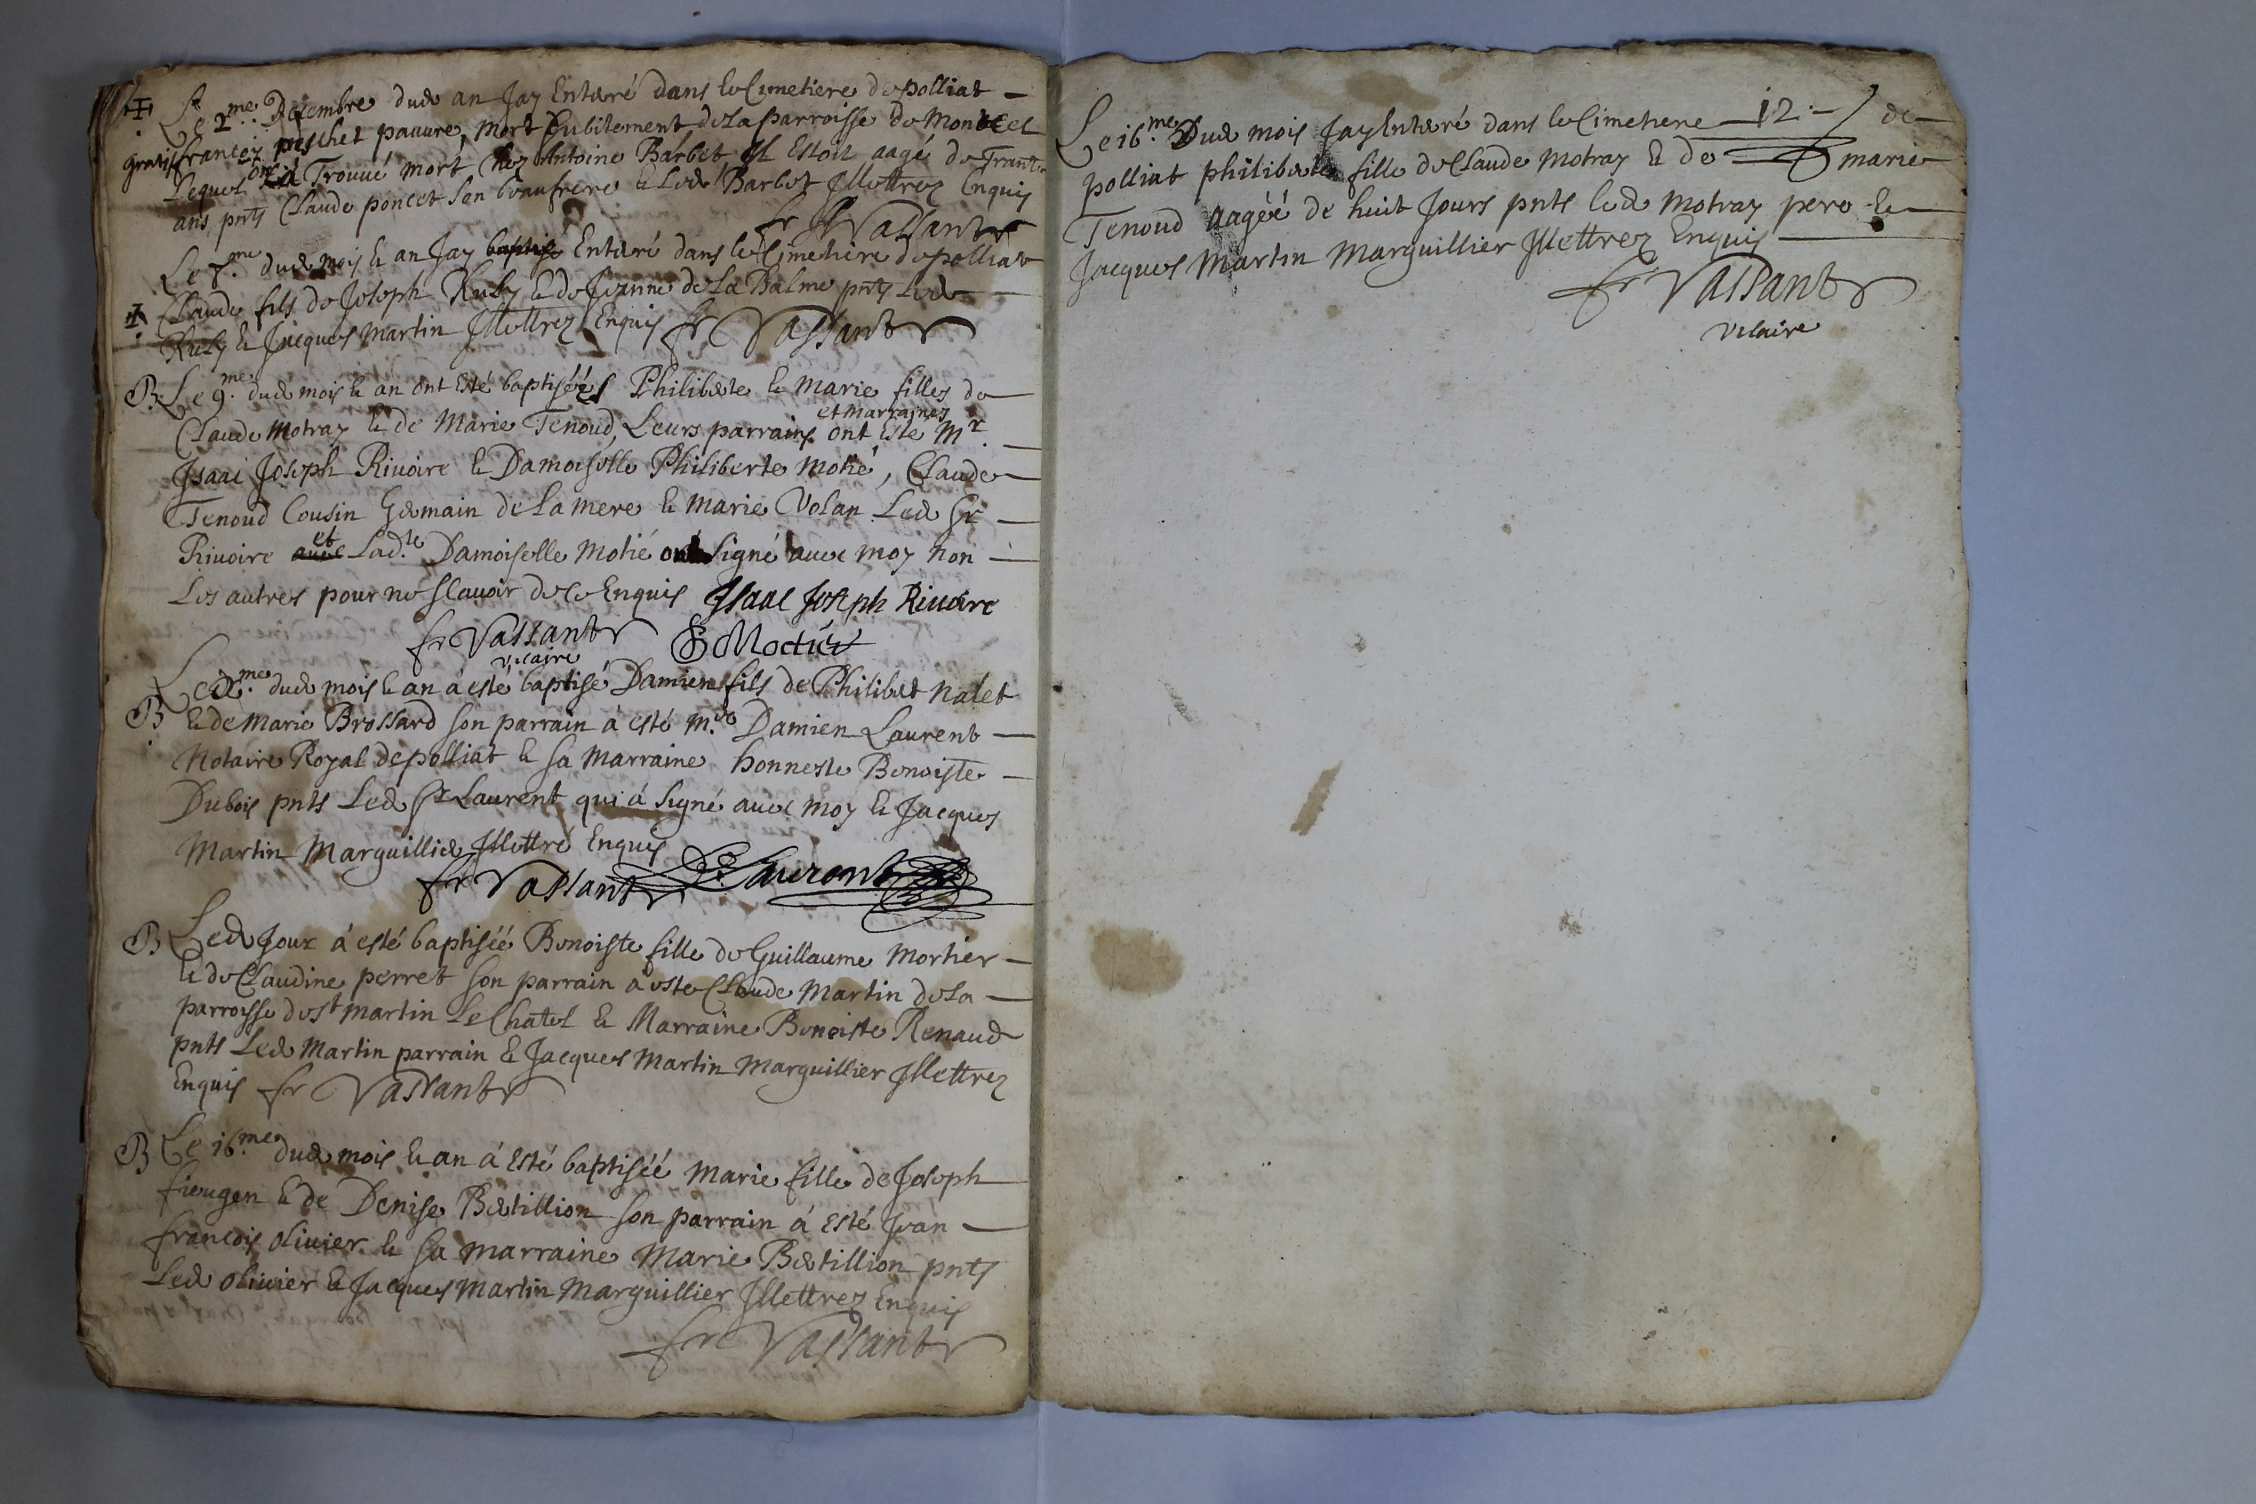 Le 2.me Decembre dud an Jay Enterré dans le Cimetiere de polliat
gratis francois peschet pauure, mort subitement de la parroisse de Montcel
Lequel Trouué mort chez Antoine Barbet Il Estoit aagé de Trante
ans pnts Claude poncet son beaufrere & Led Barbet Illettrez Enquis
fr Vassant
Le 7.me dud mois & an Jay baptise Enterré dans le Cimetiere de polliat
Claude fils de Joseph Ruby & de Jeanne de La Balme pnts Led
Ruby & Jacques Martin Illettrez Enquis fr Vassant
B Le 9.me dud mois & an ont esté baptiséés Philiberte & Marie filles de
et marraines
Claude Motray & de Marie Tenoud, Leurs parrains ont esté Mr.
Isaac Joseph Riuoire & Damoiselle Philiberte Motié, Claude
Tenoud Cousin Germain de La mere & Marie Volan Led Sr
et
Riuoire auec Lad.te Damoiselle Motié ont signé auec moy non
Les autres pour ne scauoir de ce Enquis Isaac Joseph Riuoire
fr Vassant Moctier
vicaire
Led.me dud mois & an á esté baptisé Damien fils de Philibert nalet
B & de Marie Brossard son parrain á esté M.e Damien Laurent
Notaire Royal de polliat & sa Marraine honneste Benoiste
Dubois pnts Led Sr Laurent qui á signé auec moy & Jacques
Martin Marguillier Illettré Enquis
fr Vassant D. Laurent
B Led Jour á esté baptiséé Benoiste fille de Guillaume Mortier
& de Claudine perret son parrain á esté Claude Martin de La
parroisse de st martin Le Chatel & Marraine Benoiste Renaud
pnts Led Martin parrain & Jacques Martin Marguillier Illettrez
Enquis fr Vassant
B Le 16.me dud mois & an á Esté baptiséé Marie fille de Joseph
fieugen & de Denise Bertillion son parrain á Esté Jean
francois oliuier & sa marraine Marie Bertillion pnts
Led oliuier & Jacques Martin Marguillier Illettrez Enquis
fr Vassant
Le 16.me Dud mois Jay Enterré dans le Cimetiere 12 de
polliat philiberte fille de Claude Motray & de marie
Tenoud aagéé de huit Jours pnts led Motray pere &
Jacques Martin Marguillier Illettrez Enquis
fr Vassant
vicaire